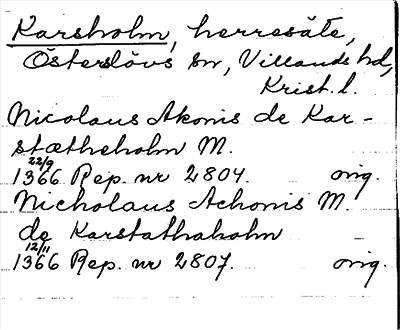 Karsholm, herresäte,
Österslövs sn, Villands hd,
Krist. l.
Nicolaus Akonis de Kar-
stætheholm M.
22/9
1366 Rep. nr 2804. orig.
Nicholaus Achonis M.
de Karstathaholm
12/11
1366 Rep. nr 2807. orig.